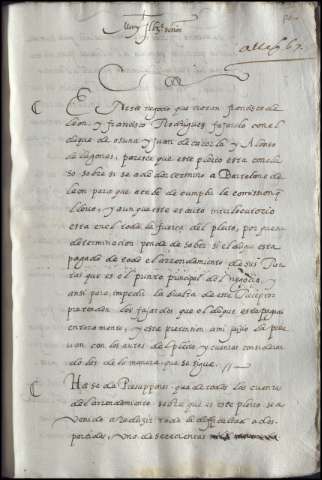 Muy Ill.e señor
En este negocio que tratan francisco de
leon y francisco Rodriguez fajardo con el
duque de osuna y Juan de caçorla y Alonso
de lugones, paresce que este pleito esta conclu
so sobre si se a de dar termino a Bartolome de
leon para que acabe de cumplir la comission q
llevo, y aunque este es auto interlocutorio
esta en el toda la fuerça del pleito, por que su
determinacion pende de saber si el duque esta
pagado de todo el arrendamiento de sus Ren
tas que es el punto principal del negocio, y
ansi para impedir la buelta de este Receptor
pretenden los fajardos que el duque esta pagado
enteramente, y esta pretension a mi juizio la
con los autos del pleito, y cuentas consideran
dolos de la manera que se sigue.
Ha se de Presupponer que de todas las cuentas
del arrendamiento sobre que es este pleito se a
venido a reduzir toda la difficultad a dos
partidas, una de